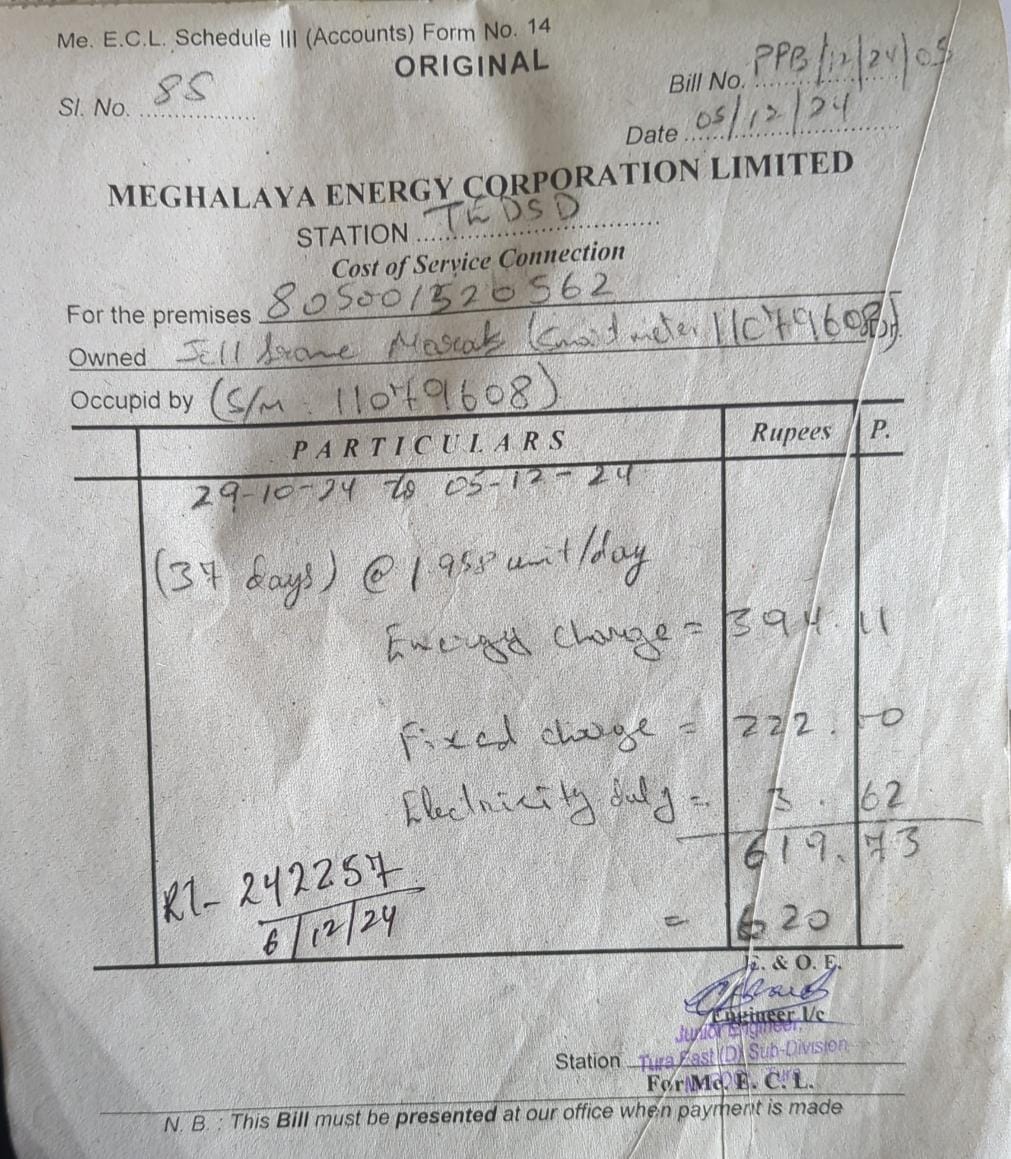 Me. E.C.L. Schedule III (Accounts) Form No. 14
ORIGINAL
Sl. No. 85
Bill No. PPB/12/24/05
Date 05/12/24
MEGHALAYA ENERGY CORPORATION LIMITED
STATION TEDSD
Cost of Service Connection
For the premises 805001320562
Owned Marak (Smart meter 11079608)
Occupid by (S/M. 11079608)
PARTICULARS Rupees P.
29-10-24 to 05-12-24
(37 days) @ 1.958 unit/day
Energy charge = 394.11
Fixed charge = 222.00
Electricity duty = 3.62
619.73
R1- 242257
6/12/24
= 620
E. & O. E.
Engineer I/c
Junior Engineer
Station Tura East (D) Sub-Division
For Me. E. C. L.
N. B. : This Bill must be presented at our office when payment is made